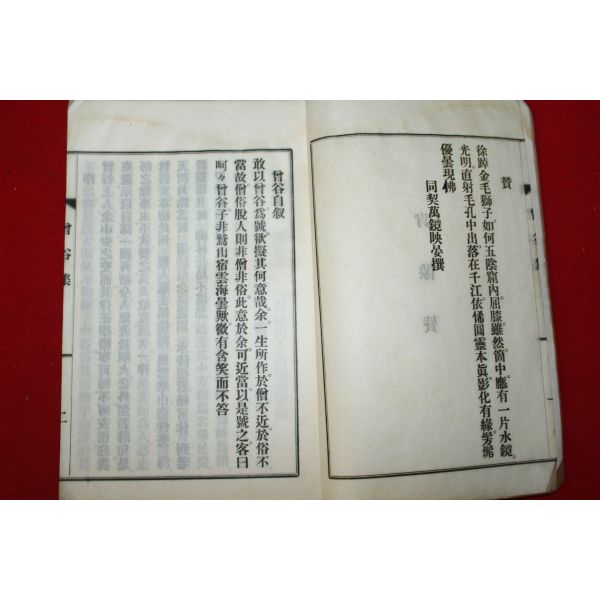 贊
徐踔金毛獅子如何五陰窟內屈膝雖然箇中應有一片水鏡
光明直射毛孔中出落在千江依俙圓靈本眞影化有緣髣髴
優曇現佛
同契萬鏡映晏撰
曾谷自叙
敢以曾谷爲號欲擬其何意哉余一生所作於僧不近於俗不
當故僧俗脫人則非僧非俗此意於余可近當以是號之客曰
呵々曾谷子非鷲山宿雲海曇歟微有含笑而不答
曾谷集
二